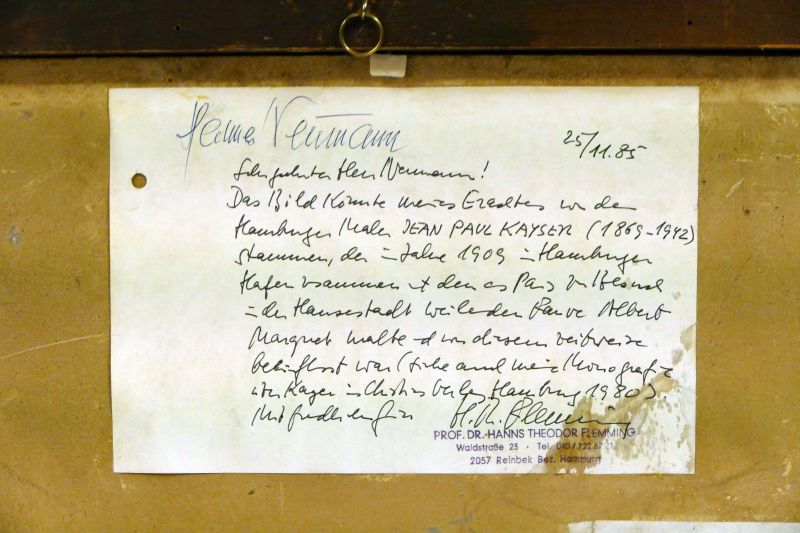 Hannes Neumann
25/11.85
Sehr geehrter Herr Neumann!
Das Bild könnte meines Erachtens von dem
Hamburger Maler JEAN PAUL KAYSER (1869-1942)
stammen, der im Jahre 1909 im Hamburger
Hafen zusammen mit dem aus Paris zu Besuch
in der Hansestadt weilenden Fauve Albert
Marquet malte und von diesem zeitweise
beeinflusst war (siehe auch meine Monografie
über Kayser im Christians Verlag Hamburg 1980).
Mit freundlichen Grüßen H. Th. Flemming
PROF. DR. HANNS THEODOR FLEMMING
Waldstraße 23 · Tel. 040/722 67 21
2057 Reinbek Bez. Hamburg